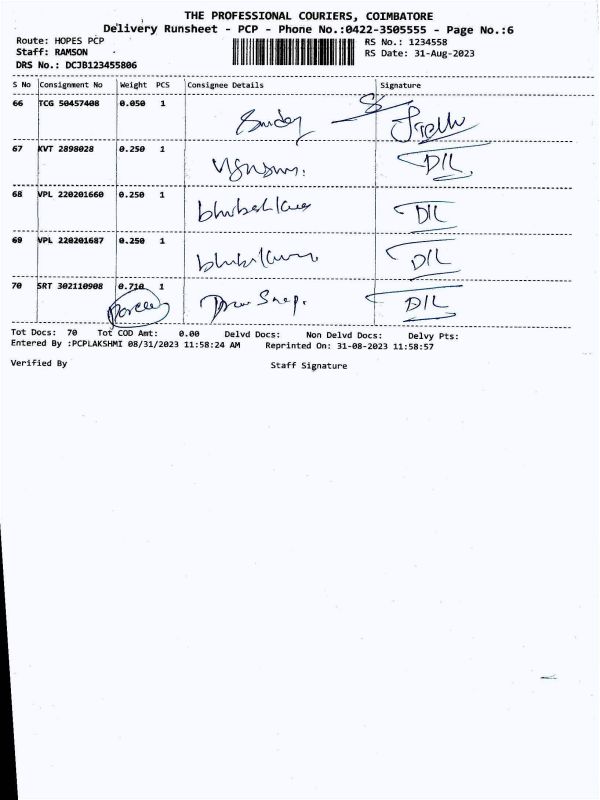 THE PROFESSIONAL COURIERS, COIMBATORE
Delivery Runsheet - PCP - Phone No.:0422-3505555 - Page No.:6
Route: HOPES PCP RS No.: 1234558
Staff: RAMSON RS Date: 31-Aug-2023
DRS No.: DCJB123455806
S No Consignment No Weight PCS Consignee Details Signature
66 TCG 50457408 0.050 1
67 KVT 2898028 0.250 1 D/L
68 VPL 220201660 0.250 1 D/L
69 VPL 220201687 0.250 1 D/L
70 SRT 302110908 0.710 1 D/L
Tot Docs: 70 Tot COD Amt: 0.00 Delvd Docs: Non Delvd Docs: Delvy Pts:
Entered By :PCPLAKSHMI 08/31/2023 11:58:24 AM Reprinted On: 31-08-2023 11:58:57
Verified By Staff Signature